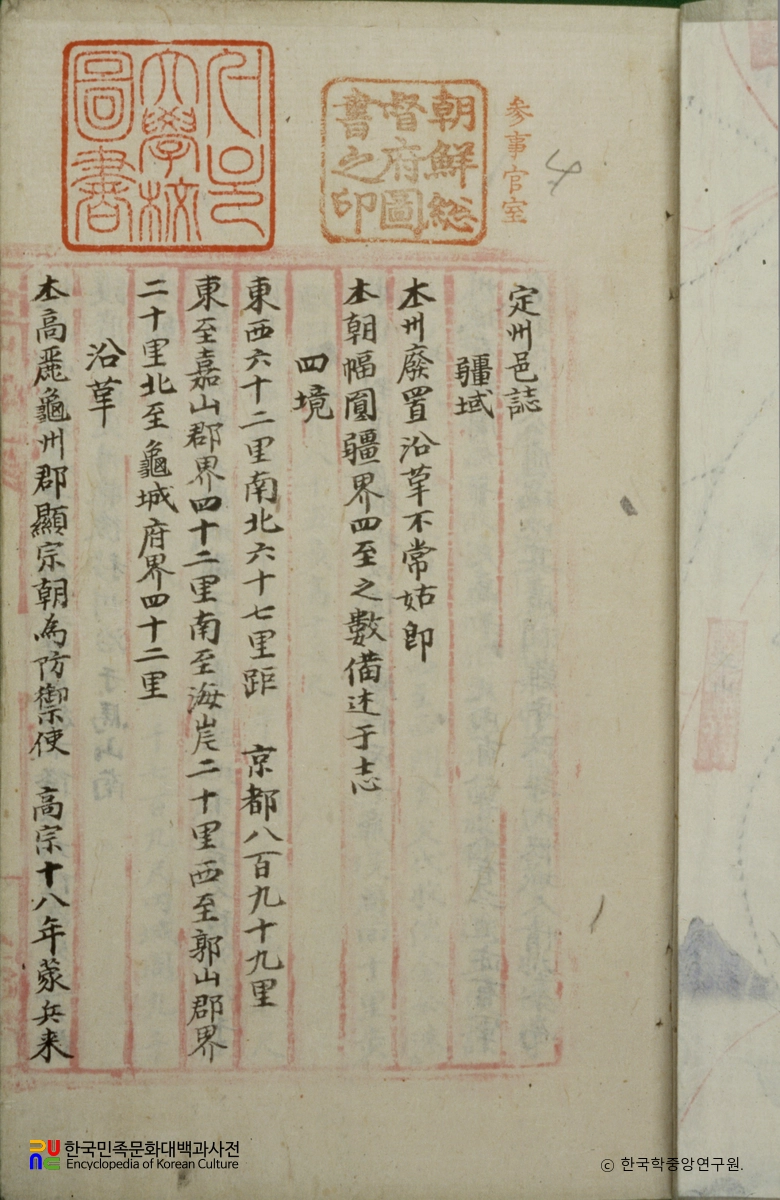 參事官室
4
朝鮮総
督府圖
書之印
大學校
圖書
定州邑誌
疆域
本州廢置沿革不常姑即
本朝幅圓疆界四至之數備述于志
四境
東西六十二里南北六十七里距 京都八百九十九里
東至嘉山郡界四十二里南至海岸二十里西至郭山郡界
二十里北至龜城府界四十二里
沿革
本高麗龜州郡顯宗朝為防禦使 高宗十八年蒙兵来
한국민족문화대백과사전
Encyclopedia of Korean Culture
ⓒ 한국학중앙연구원.